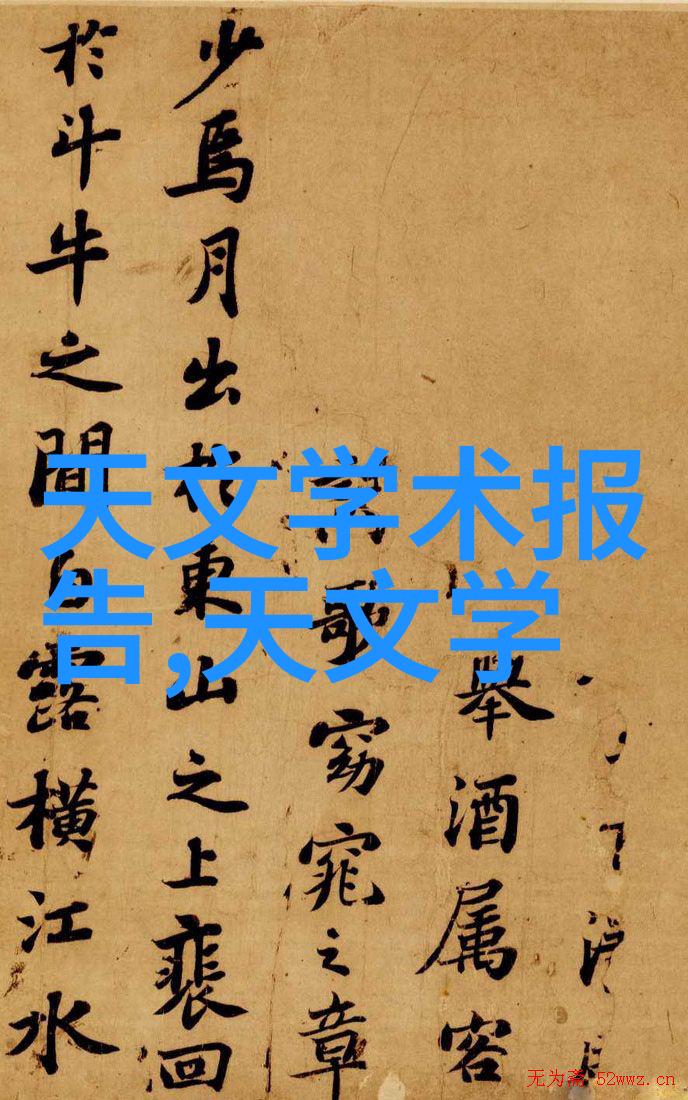 天文学术报
告,天文学
舉酒属客
歌窈窕之章
少焉月出於東山之上裵回
於斗牛之間白露橫江水
无为斋 52wwz.cn